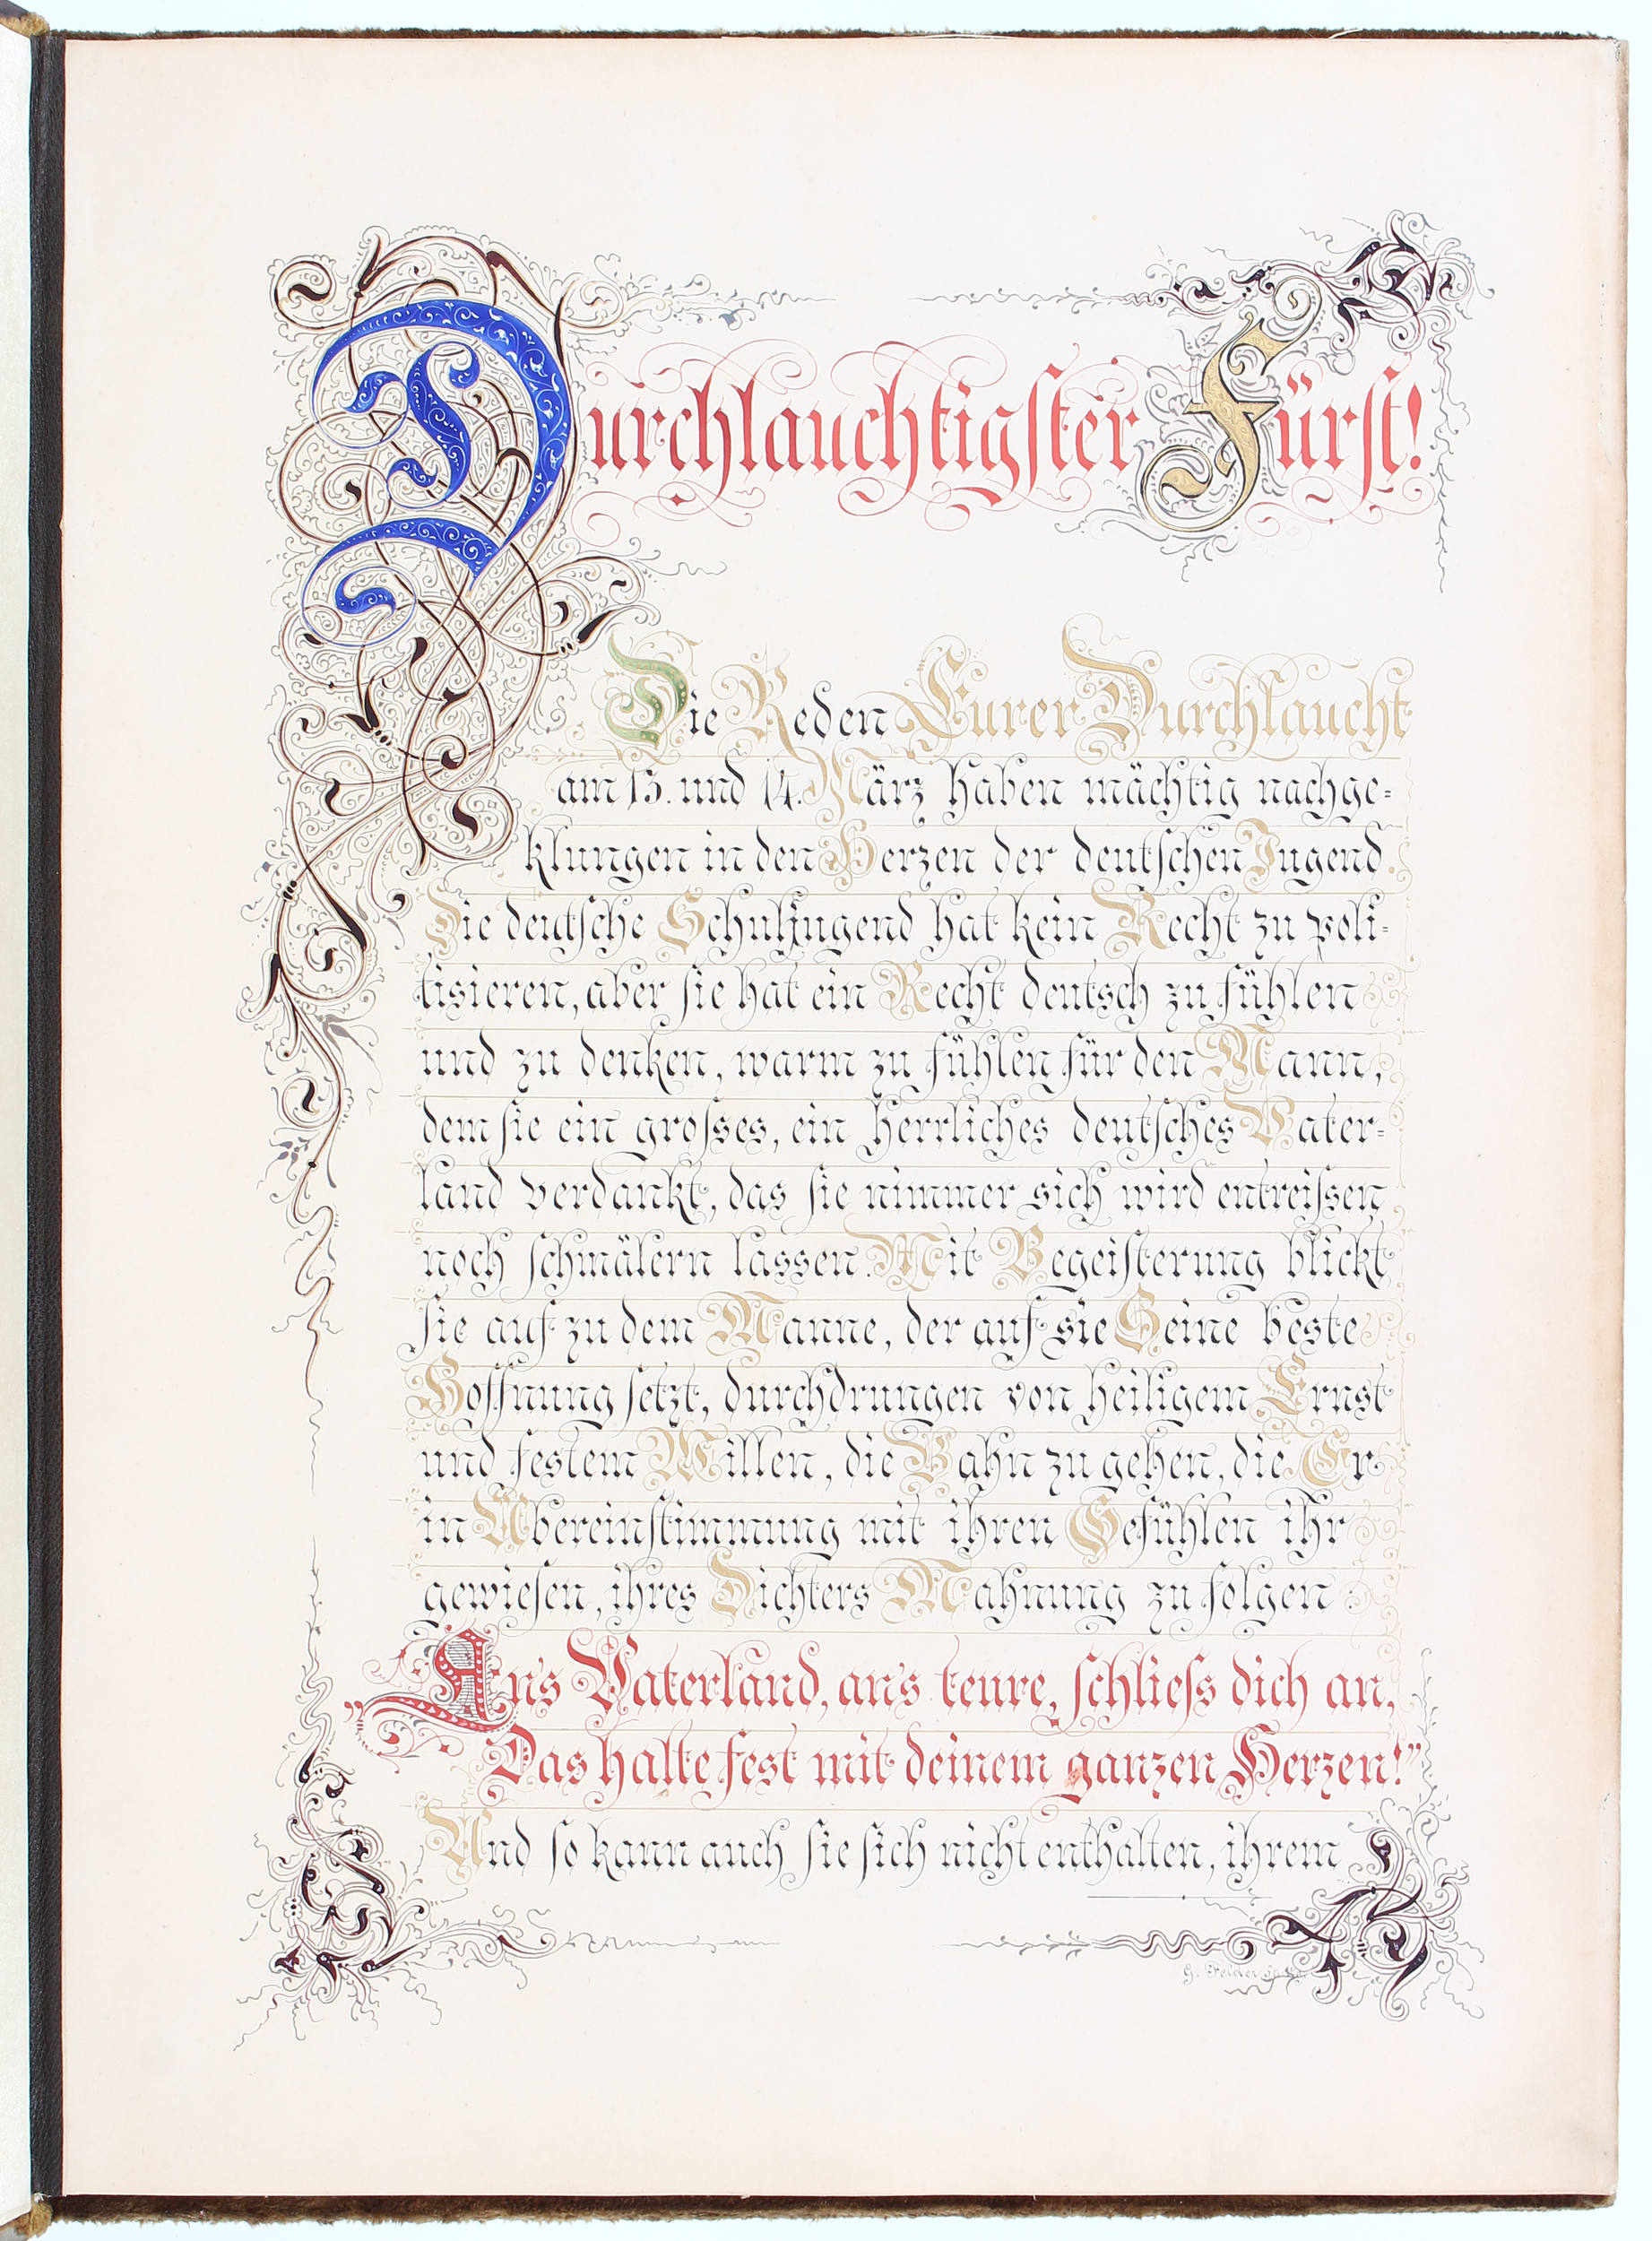 Durchlauchtigster Fürst!
Die Reden Eurer Durchlaucht
am 13. und 14. März haben mächtig nachge-
klungen in den Herzen der deutschen Jugend.
Die deutsche Schuljugend hat kein Recht zu poli-
tisieren, aber sie hat ein Recht deutsch zu fühlen
und zu denken, warm zu fühlen für den Mann,
dem sie ein grosses, ein herrliches deutsches Vater-
land verdankt, das sie nimmer sich wird entreissen
noch schmälern lassen. Mit Begeisterung blickt
sie auf zu dem Manne, der auf sie Seine beste
Hoffnung setzt, durchdrungen von heiligem Ernst
und festem Willen, die Bahn zu gehen, die Er
in Übereinstimmung mit ihren Gefühlen ihr
gewiesen, ihres Dichters Mahnung zu folgen
„An's Vaterland, an's teure, schliess dich an,
Das halte fest mit deinem ganzen Herzen!”
Und so kann auch sie sich nicht enthalten, ihrem